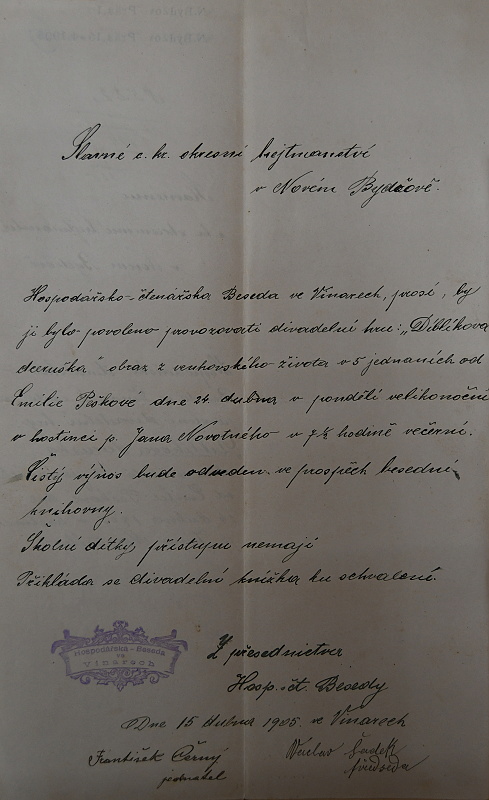 Slavné c. kr. okresní hejtmanství
v Novém Bydžově.
Hospodářsko-čtenářska Beseda ve Vinarech, prosí, by
ji bylo povoleno provozovati divadelní hru: „Diblíkova
dceruška" obraz z venkovského života v 5 jednaních od
Emilie Peškové dne 24. dubna v pondělí velikonoční
v hostinci p. Jana Novotného v 7½ hodině večerní.
Čistý výnos bude odveden ve prospěch besední
knihovny.
Školní dítky přístupu nemají
Přikláda se divadelní knížka ku schvalení.
Z předsednictva
Hosp. čt. Besedy
Hospodářská-Beseda
ve
Vinarech
Dne 15 dubna 1905 ve Vinarech
František Černý
jednatel
Václav
předseda